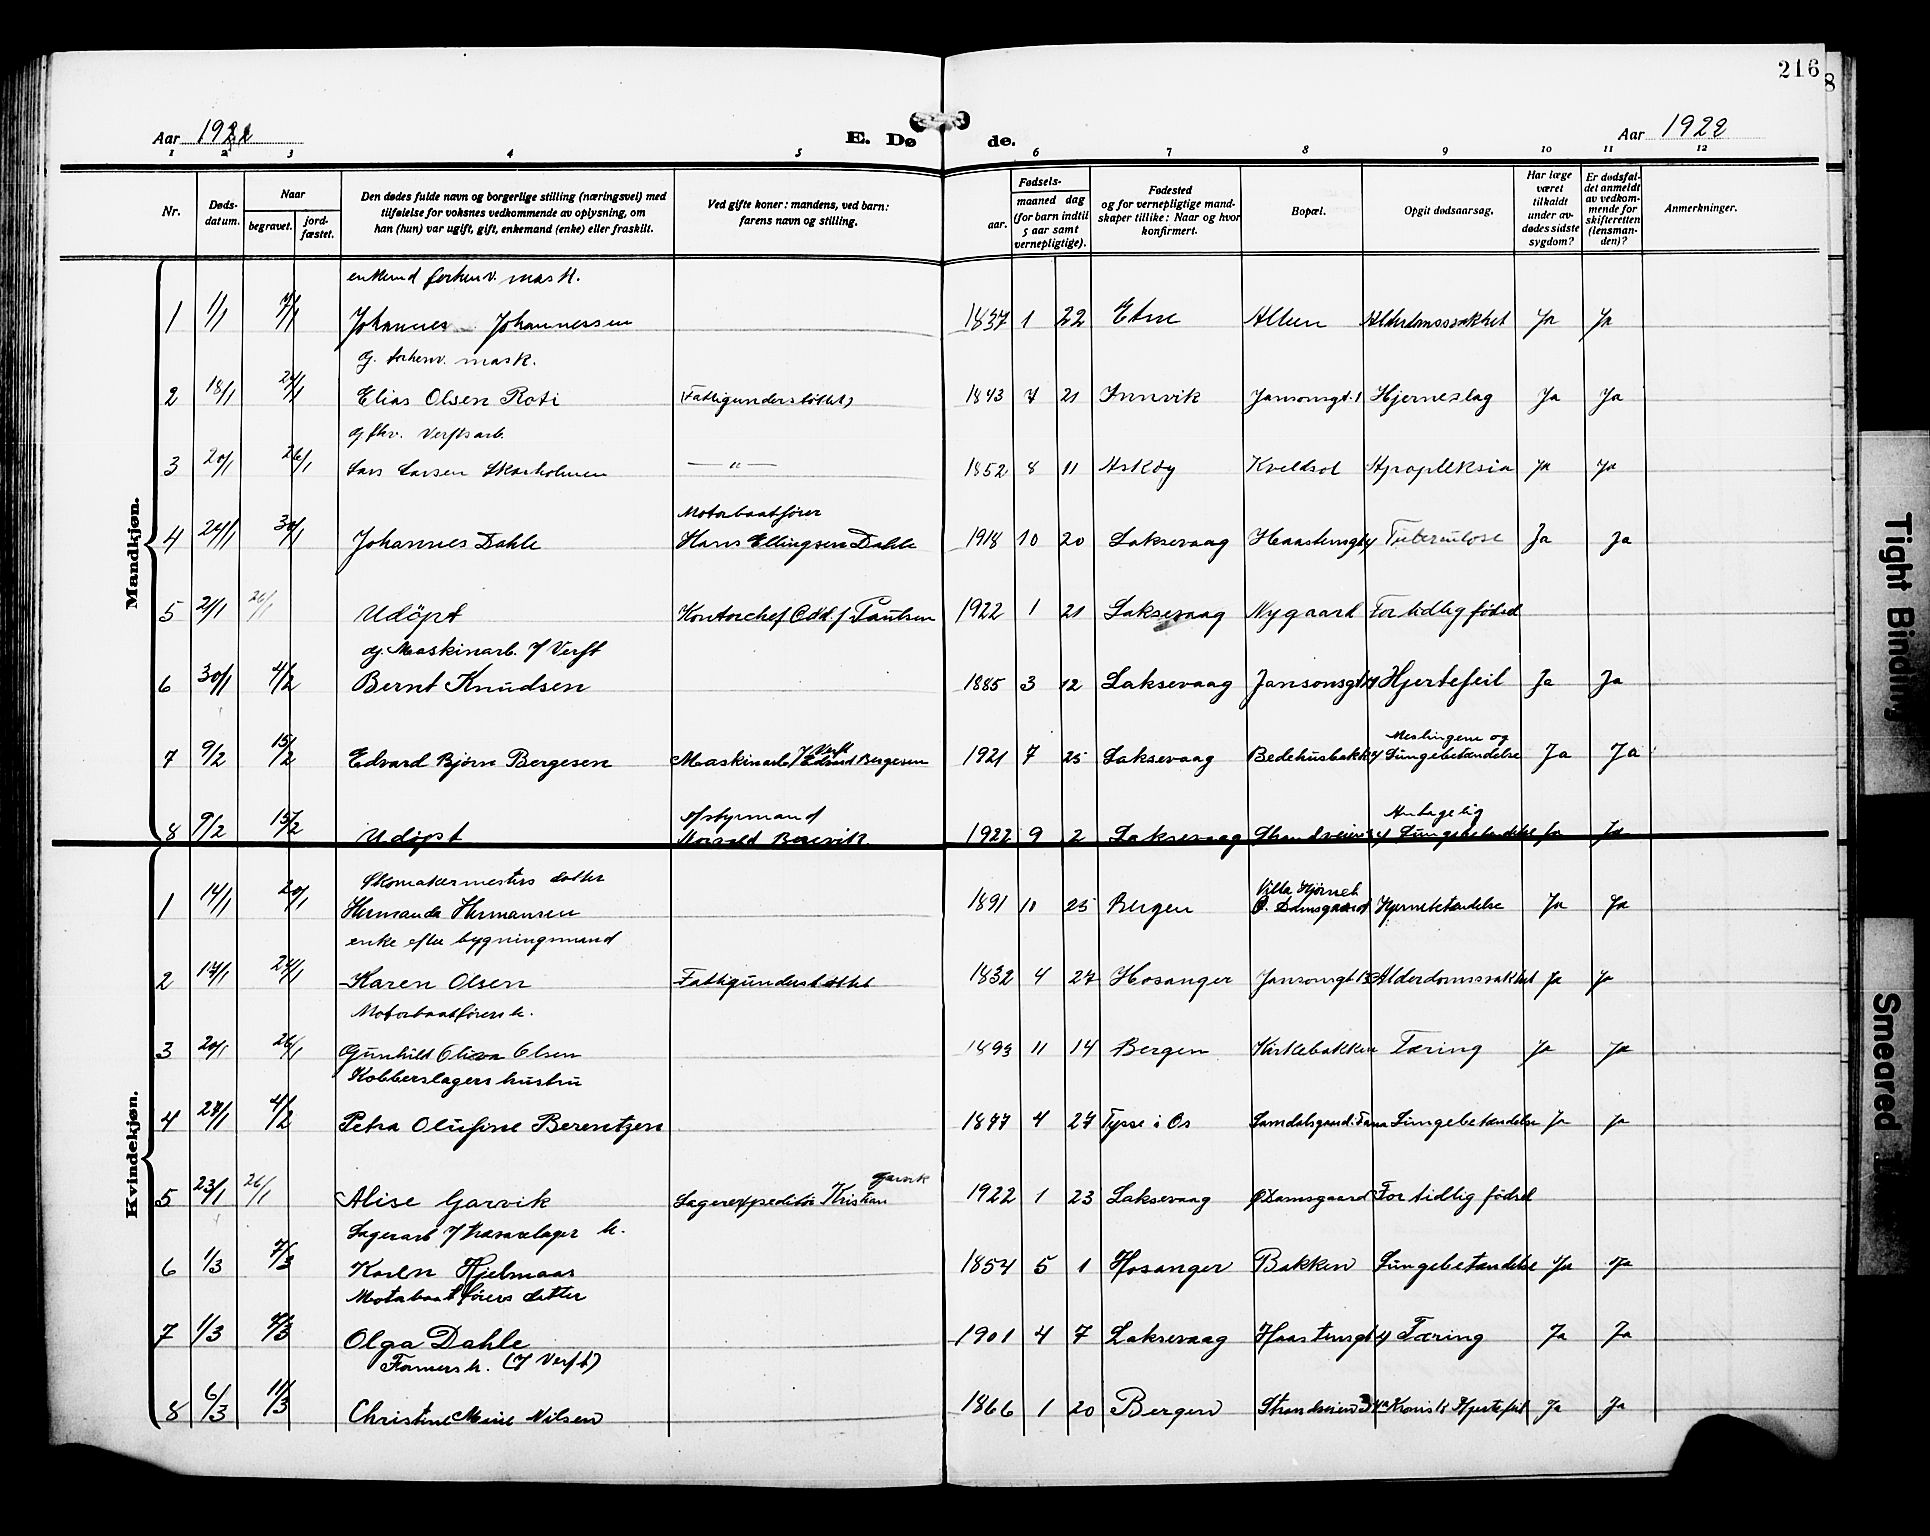 216
8
Aar 1922
E. Døde.
Aar 1922
1 2 3 4 5 6 7 8 9 10 11 12
Nr.
Dødsdatum.
Naar
begravet.
jordfæstet.
Den dødes fulde navn og borgerlige stilling (næringsvei) med
tilføielse for voksnes vedkommende av oplysning, om
han (hun) var ugift, gift, enkemand (enke) eller fraskilt.
Ved gifte koner: mandens, ved barn:
farens navn og stilling.
Fødsels-
aar.
maaned dag
(for barn indtil
5 aar samt
vernepligtige).
Fødested
og for vernepligtige mand-
skaper tillike: Naar og hvor
konfirmert.
Bopæl.
Opgit dødsaarsag.
Har læge
været
tilkaldt
under av-
dødes sidste
sygdom?
Er dødsfal-
det anmeldt
av vedkom-
mende for
skifteretten
(lensman-
den)?
Anmerkninger.
Mandkjøn.
enkemd forhenv. mask.
1 1/1 7/1 Johannes Johannessen 1837 1 22 Etne Alleen Alderdomssvakhet Ja Ja
g. forhenv. mask.
2 18/1 24/1 Elias Olsen Roti (Fattigunderstöttet) 1843 7 21 Innvik Jansonsgt. 1 Hjerneslag Ja Ja
g fhv. Verftsarb.
3 20/1 26/1 Lars Larsen Skarholmen — " — 1852 8 11 Askøy Kveldsol Apopleksia Ja Ja
Motorbaatfører
4 24/1 30/1 Johannes Dahle Hans Ellingsen Dahle 1918 10 20 Laksevaag Haastensgt 4 Tuberkulose Ja Ja
5 21/1 26/1 Udöpt Kontorchef Odd. f Paulsen 1922 1 21 Laksevaag Nygaard For tidlig fødsel
g. Maskinarb. / Verft
6 30/1 4/2 Bernt Knudsen 1885 3 12 Laksevaag Jansonsgt Hjertefeil Ja Ja
Meslingene og
7 9/2 15/2 Edvard Bjørn Bergesen Maskinarb / Verft Edvard Bergesen 1921 7 25 Laksevaag Bedehusbakk 4 Lungebetændelse Ja Ja
Styrmand
Antagelig
8 9/2 15/2 Udöpt Norvald Berevik 1922 9 2 Laksevaag Strandveien Lungebetændelse Ja Ja
Kvindekjøn.
Skomakermesters datter
Villa Hjørneb
1 14/1 20/1 Hermanda Hermansen 1891 10 25 Bergen Ø. Damsgaard Hjernebetændelse Ja Ja
enke efter bygningsmand
2 17/1 24/1 Karen Olsen Fattigunderstöttet 1832 4 27 Hosanger Jansonsgt 13 Alderdomssvakhet Ja Ja
Motorbaatførers h.
3 20/1 26/1 Gunhild Olava Olsen 1893 11 14 Bergen Kirkebakken Tæring Ja Ja
Kobberslagers hustru
4 27/1 4/2 Petra Olufine Berentzen 1877 4 27 Tysse i Os Lamdalsgaard i Fana Lungebetændelse Ja Ja
Garvik
5 23/1 26/1 Alise Garvik Lagerexpeditör Kristian 1922 1 23 Laksevaag Ø Damsgaard For tidlig födsel
Lagerarb / Kravarelager h.
6 1/3 7/3 Karen Hjelmaas 1854 5 1 Hosanger Bakken Lungebetændelse Ja Ja
Motorbaatførers datter
7 1/3 8/3 Olga Dahle 1901 4 7 Laksevaag Haastensgt 4 Tæring Ja Ja
Formers h. (/ Verft)
8 6/3 11/3 Christine Marie Nilsen 1866 1 20 Bergen Strandveien 34a Kronisk Hjertefeil Ja Ja
Tight Binding
Smeared